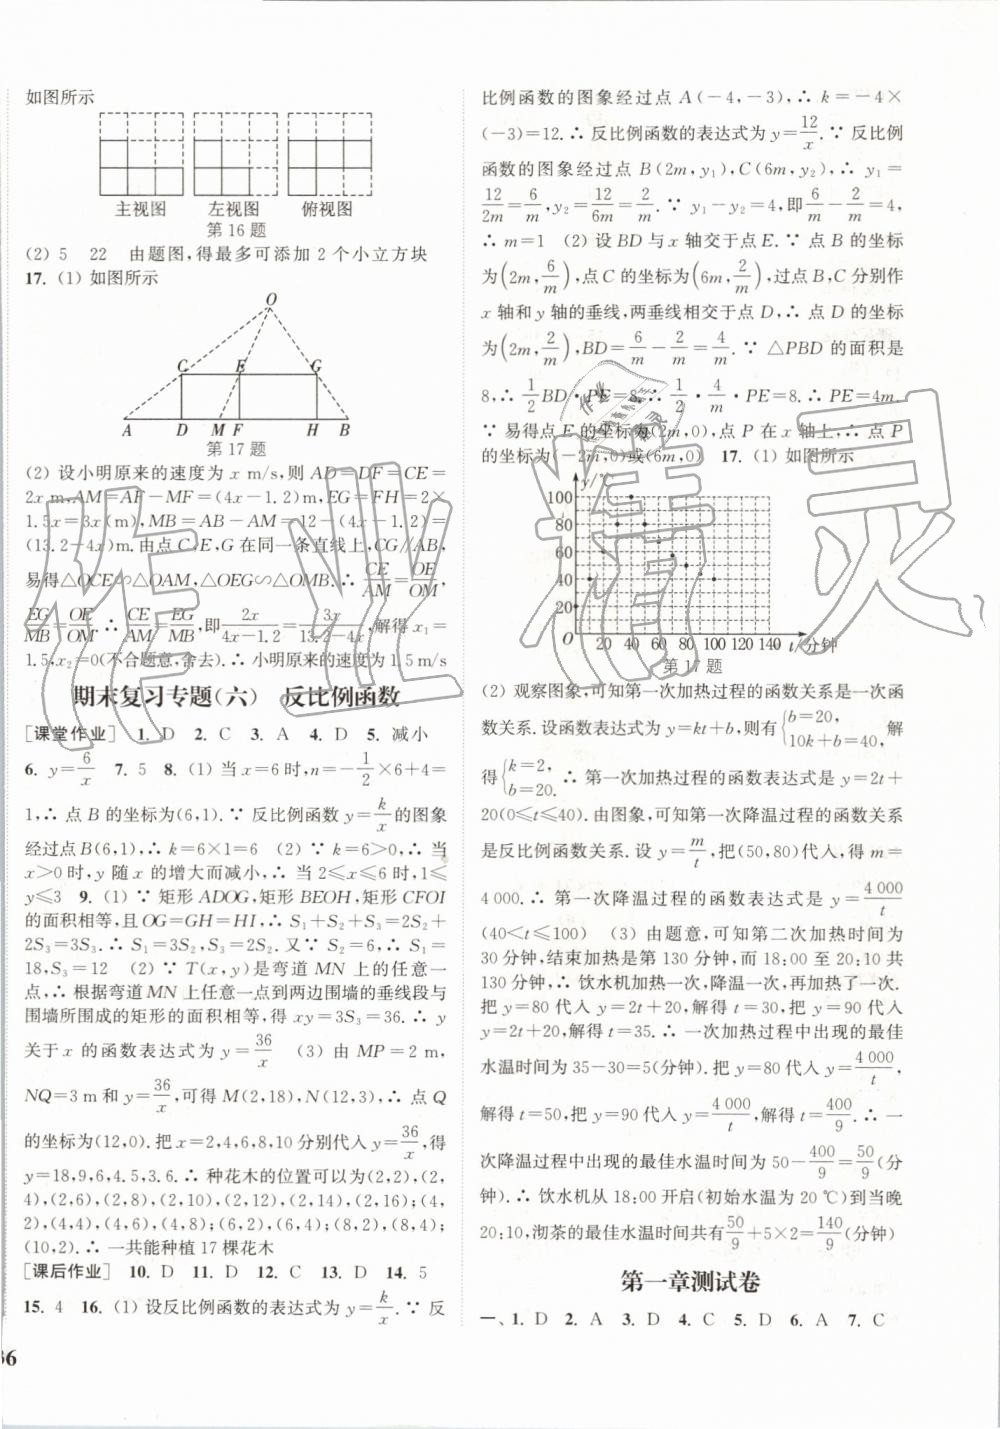 如图所示
主视图 左视图 俯视图
第16题
(2) 5 22 由题图,得最多可添加 2 个小立方块
17. (1) 如图所示
O
C E G
A D M F H B
第17题
(2) 设小明原来的速度为 x m/s,则 AD=DF=CE=
2x m,AM=AF-MF=(4x-1.2)m,EG=FH=2×
1.5x=3x(m),MB=AB-AM=12-(4x-1.2)=
(13.2-4x)m.由点C,E,G在同一条直线上,CG∥AB,
易得△OCE∽△OAM,△OEG∽△OMB.∴ CE/AM=OE/OM,
EG/MB=OE/OM.∴ CE/AM=EG/MB,即2x/(4x-1.2)=3x/(13.2-4x),解得 x₁=
1.5,x₂=0(不合题意,舍去).∴ 小明原来的速度为1.5 m/s
期末复习专题(六) 反比例函数
[课堂作业] 1. D 2. C 3. A 4. D 5. 减小
6. y=6/x 7. 5 8. (1) 当 x=6 时,n=-1/2×6+4=
1,∴ 点 B 的坐标为(6,1).∵ 反比例函数 y=k/x 的图象
经过点B(6,1),∴ k=6×1=6 (2) ∵ k=6>0,∴ 当
x>0 时,y 随 x 的增大而减小,∴ 当 2≤x≤6 时,1≤
y≤3 9. (1) ∵ 矩形 ADOG,矩形 BEOH,矩形 CFOI
的面积相等,且OG=GH=HI,∴ S₁+S₂+S₃=2S₂+
2S₃=3S₃.∴ S₁=3S₂,S₃=2S₂.又∵ S₂=6,∴ S₁=
18,S₃=12 (2) ∵ T(x,y)是弯道 MN 上的任意一
点,∴ 根据弯道MN 上任意一点到两边围墙的垂线段与
围墙所围成的矩形的面积相等,得 xy=3S₃=36.∴ y
关于x 的函数表达式为 y=36/x (3) 由 MP=2 m,
NQ=3 m 和 y=36/x,可得 M(2,18),N(12,3),∴ 点 Q
的坐标为(12,0).把 x=2,4,6,8,10 分别代入 y=36/x,得
y=18,9,6,4.5,3.6.∴ 种花木的位置可以为(2,2),(2,
4),(2,6),(2,8),(2,10),(2,12),(2,14),(2,16);(4,
2),(4,4),(4,6),(4,8);(6,2),(6,4);(8,2),(8,4);
(10,2).∴ 一共能种植 17 棵花木
[课后作业] 10. D 11. D 12. C 13. D 14. 5
15. 4 16. (1) 设反比例函数的表达式为 y=k/x.∵ 反
比例函数的图象经过点 A(-4,-3),∴ k=-4×
(-3)=12.∴ 反比例函数的表达式为 y=12/x.∵ 反比例
函数的图象经过点 B(2m,y₁),C(6m,y₂),∴ y₁=
12/2m=6/m,y₂=12/6m=2/m.∵ y₁-y₂=4,即6/m-2/m=4,
∴ m=1 (2) 设 BD 与 x 轴交于点 E.∵ 点 B 的坐标
为(2m,6/m),点 C 的坐标为(6m,2/m),过点 B,C 分别作
x 轴和 y 轴的垂线,两垂线相交于点 D,∴ 点 D 的坐标
为(2m,2/m),BD=6/m-2/m=4/m.∵ △PBD 的面积是
8,∴ 1/2BD·PE=8.∴ 1/2·4/m·PE=8.∴ PE=4m.
∵ 易得点 E 的坐标为(2m,0),点 P 在 x 轴上,∴ 点 P
的坐标为(-2m,0)或(6m,0) 17. (1) 如图所示
y/℃
100
80
60
40
20
O 20 40 60 80 100 120 140 t/分钟
第17题
(2) 观察图象,可知第一次加热过程的函数关系是一次函
数关系.设函数表达式为 y=kt+b,则有{b=20, 10k+b=40, 解
得{k=2, b=20. ∴ 第一次加热过程的函数表达式是 y=2t+
20(0≤t≤40).由图象,可知第一次降温过程的函数关系
是反比例函数关系.设 y=m/t,把(50,80)代入,得 m=
4 000.∴ 第一次降温过程的函数表达式是 y=4 000/t
(40<t≤100) (3) 由题意,可知第二次加热时间为
30分钟,结束加热是第 130分钟,而 18:00 至 20:10 共
130分钟,∴ 饮水机加热一次,降温一次,再加热了一次.
把 y=80 代入 y=2t+20,解得 t=30,把 y=90 代入
y=2t+20,解得 t=35.∴ 一次加热过程中出现的最佳
水温时间为 35-30=5(分钟).把 y=80 代入 y=4 000/t,
解得 t=50,把 y=90 代入 y=4 000/t,解得 t=400/9.∴ 一
次降温过程中出现的最佳水温时间为 50-400/9=50/9(分
钟).∴ 饮水机从 18:00 开启(初始水温为 20 ℃)到当晚
20:10,沏茶的最佳水温时间共有50/9+5×2=140/9(分钟)
第一章测试卷
一、1. D 2. A 3. D 4. C 5. D 6. A 7. C
36
作业精灵